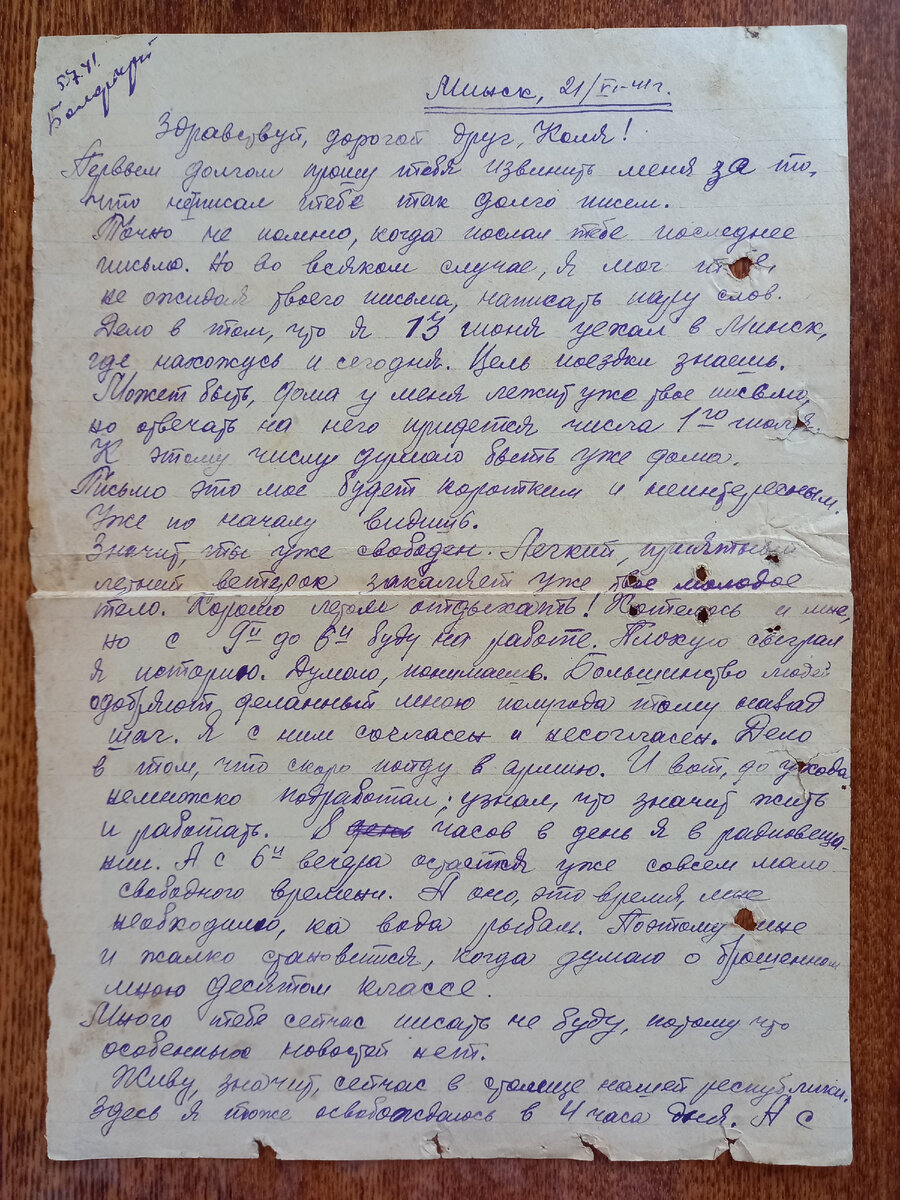 5.7.41.
Минск, 21/VI-41г.
Здравствуй, дорогой друг, Коля!
Первым долгом прошу тебя извинить меня за то,
что не писал тебе так долго писем.
Точно не помню, когда послал тебе последнее
письмо. Но во всяком случае, я мог
не ожидая твоего письма, написать пару слов.
Дело в том, что я 13 июня уехал в Минск,
где нахожусь и сегодня. Цель поездки знаешь.
Может быть, дома у меня лежит уже твое письмо,
но отвечать на него придется числа 1го июля.
К этому числу думаю быть уже дома.
Письмо это мое будет коротким и неинтересным.
Уже по началу видишь.
Значит, ты уже свободен. Легкий, приятный
летний ветерок закаляет уже твое молодое
тело. Хорошо летом отдыхать! Хотелось и мне,
но с 9ч до 6ч буду на работе. Плохую сыграл
я историю. Думаю, понимаешь. Большинство людей
одобряют, сделанный мною полгода тому назад
шаг. Я с ним согласен и несогласен. Дело
в том, что скоро пойду в армию. И вот, до ухода
немножко подработал; узнал, что значит жить
и работать. 8 часов в день я в радиовеща-
нии. А с 6ч вечера остается уже совсем мало
свободного времени. А оно, это время, мне
необходимо, ка вода рыбам. Поэтому мне
и жалко становится, когда думаю о брошенном
мною десятом классе.
Много тебе сейчас писать не буду, потому что
особенных новостей нет.
Живу, значит, сейчас в столице нашей республики.
Здесь я тоже освобождаюсь в 4 часа дня. А с